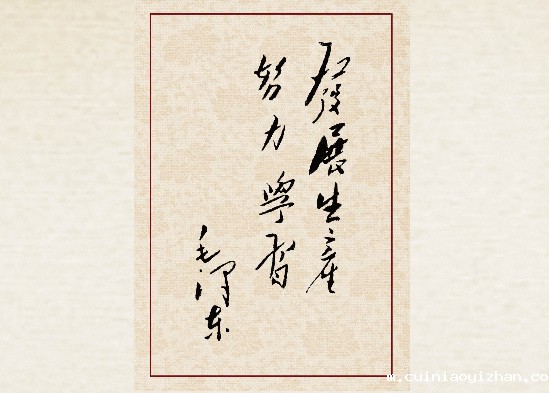 發展生產
努力學習
毛澤东
m.cuiniaoyizhan.co